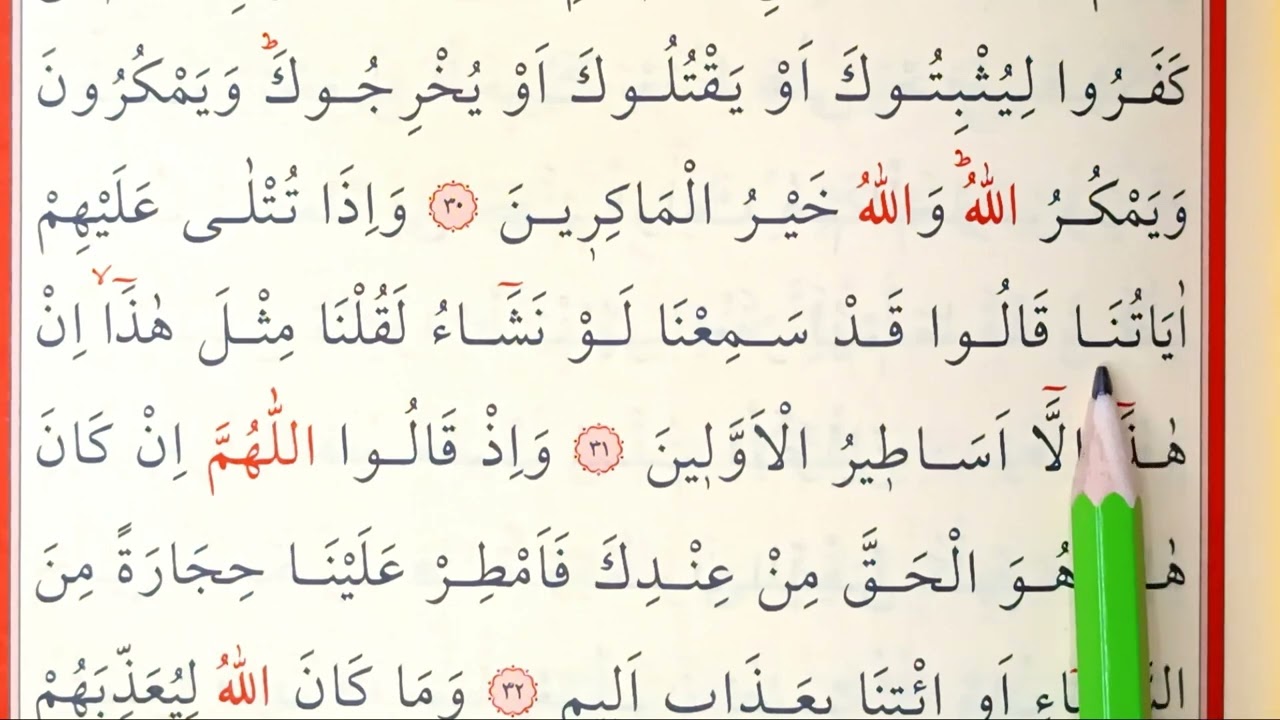 كَفَرُوا لِيُثْبِتُوكَ اَوْ يَقْتُلُوكَ اَوْ يُخْرِجُوكَۜ وَيَمْكُرُونَ
وَيَمْكُرُ اللّٰهُۜ وَاللّٰهُ خَيْرُ الْمَاكِر۪ينَ ﴿٣٠﴾ وَاِذَا تُتْلٰى عَلَيْهِمْ
اٰيَاتُنَا قَالُوا قَدْ سَمِعْنَا لَوْ نَشَٓاءُ لَقُلْنَا مِثْلَ هٰذَٓاۙ اِنْ
هٰذَٓا اِلَّٓا اَسَاط۪يرُ الْاَوَّل۪ينَ ﴿٣١﴾ وَاِذْ قَالُوا اللّٰهُمَّ اِنْ كَانَ
هُوَ الْحَقَّ مِنْ عِنْدِكَ فَاَمْطِرْ عَلَيْنَا حِجَارَةً مِنَ
اَوِ ائْتِنَا بِعَذَابٍ اَل۪يمٍ ﴿٣٢﴾ وَمَا كَانَ اللّٰهُ لِيُعَذِّبَهُمْ